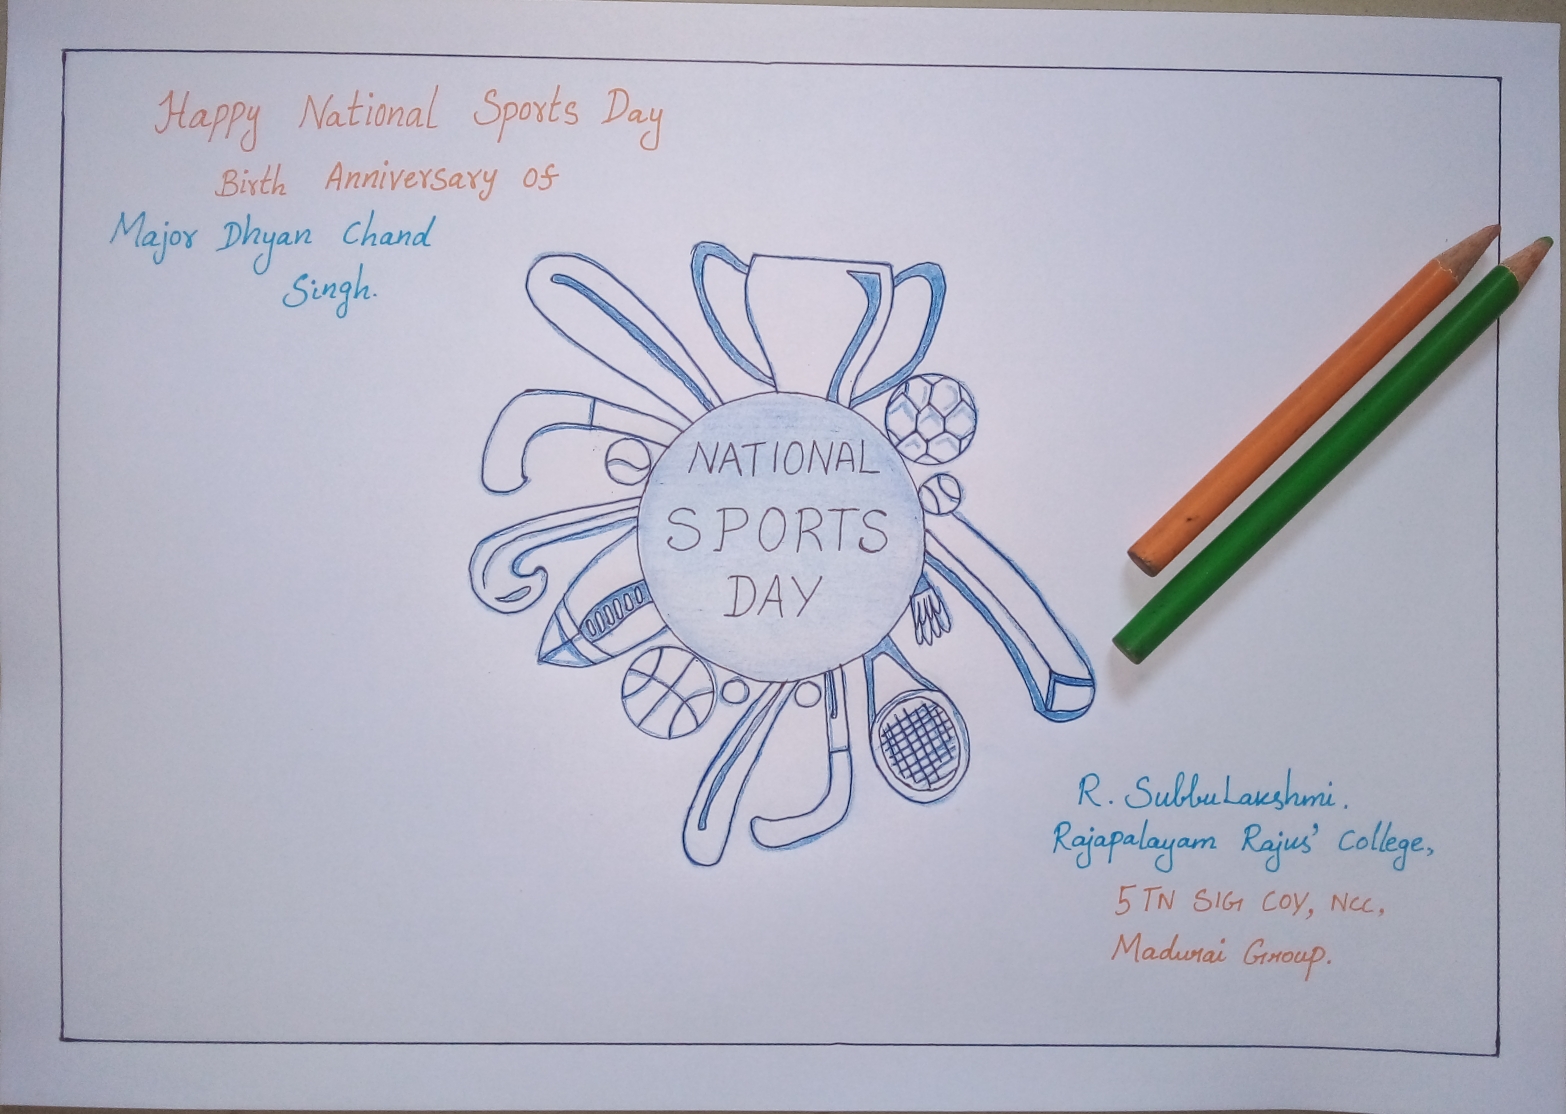 Happy National Sports Day
Birth Anniversary of
Major Dhyan Chand
Singh.
NATIONAL
SPORTS
DAY
R. SubbuLakshmi.
Rajapalayam Rajus' College,
5 TN SIG COY, NCC,
Madurai Group.